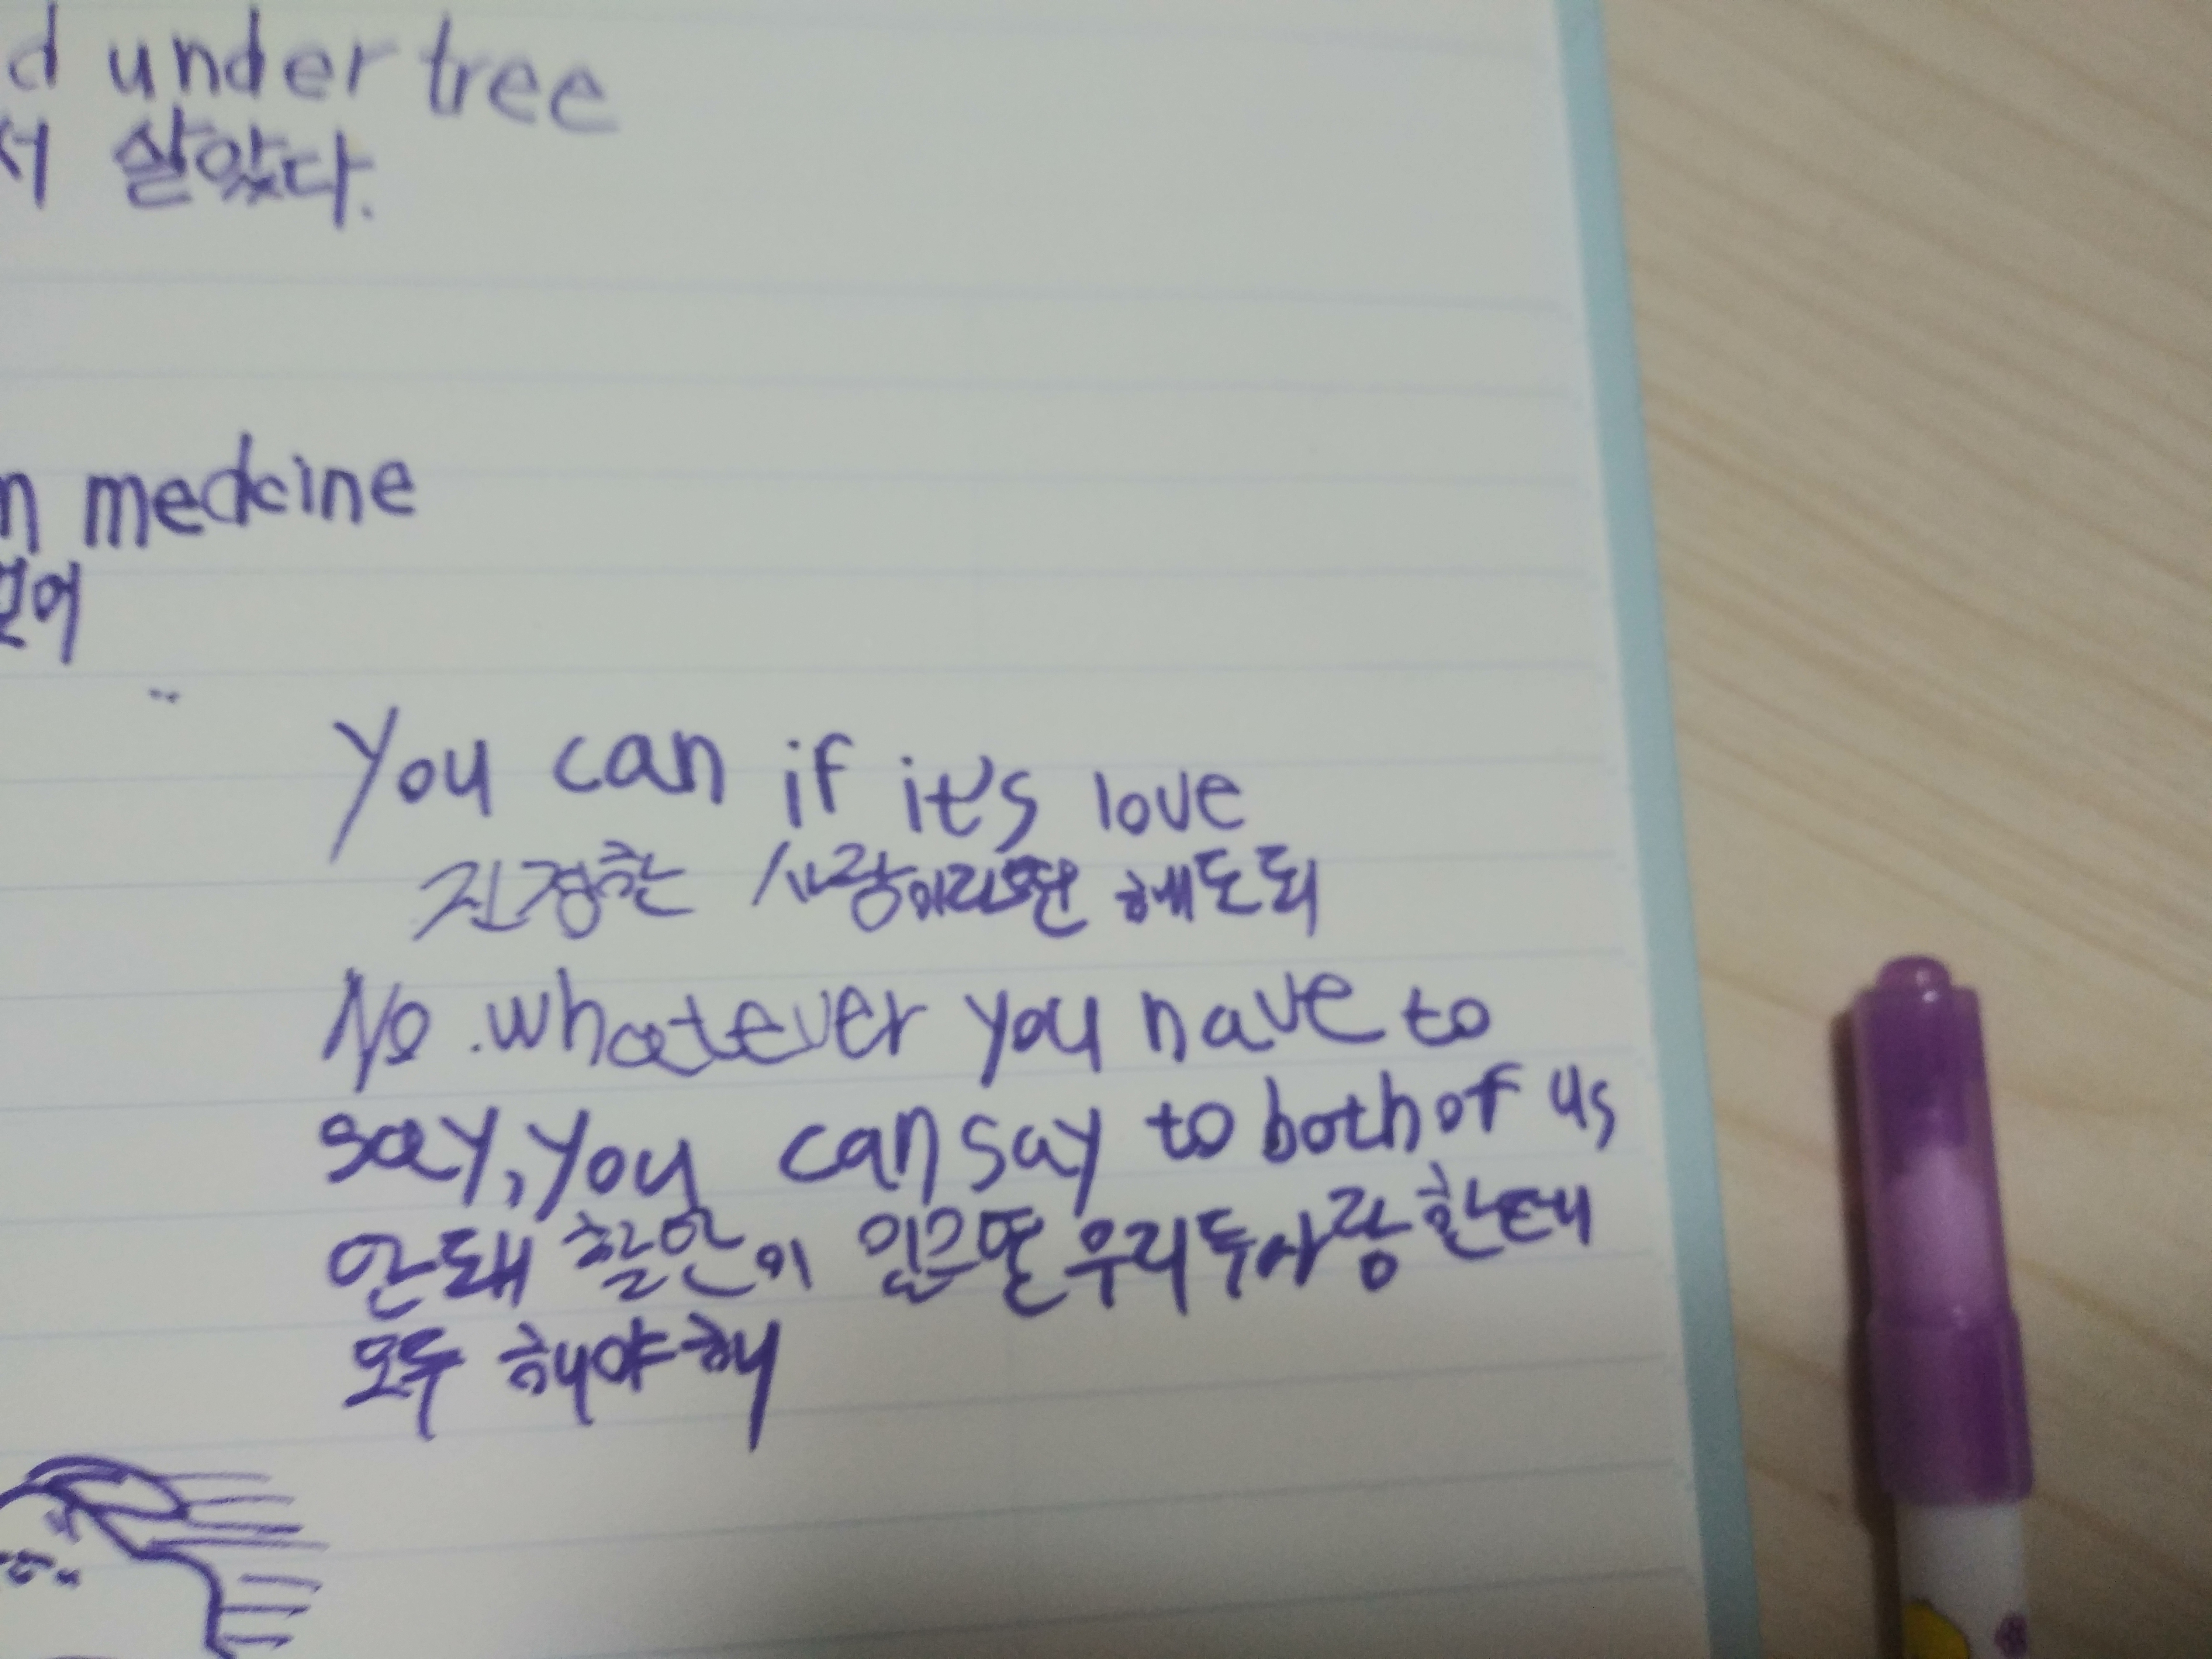 d under tree
서 살았다.
n medcine
없어
You can if it's love
진정한 사랑이라면 해도 되
No. whatever you have to
say, you can say to both of us
안돼 할 이 있으면 우리 두사랑한테
모두 해야해